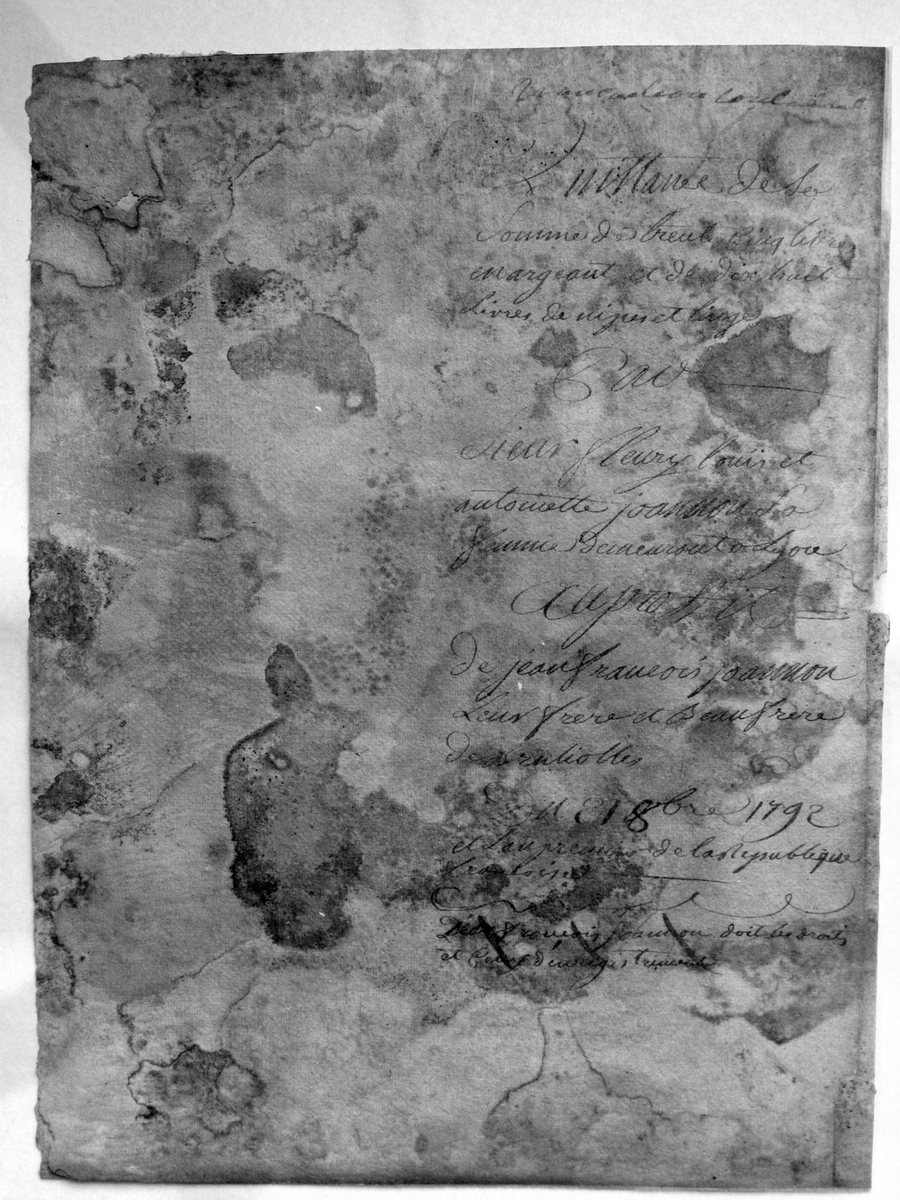 quittance de la
Somme de trente Cinq livres
en argeant et de dix huit
Livres de nipes et linge
Par
Sieur fleury Louis et
antoinette joannon Sa
femme Demeurant a Lyon
Au profit
De jean francois joannon
Leur frere et Beaufrere
de
Du 21 8bre 1792
et L'an premier de la Republique
francoise
Dit jean francois joannon doit les droits
et Celuy d'enregistrement